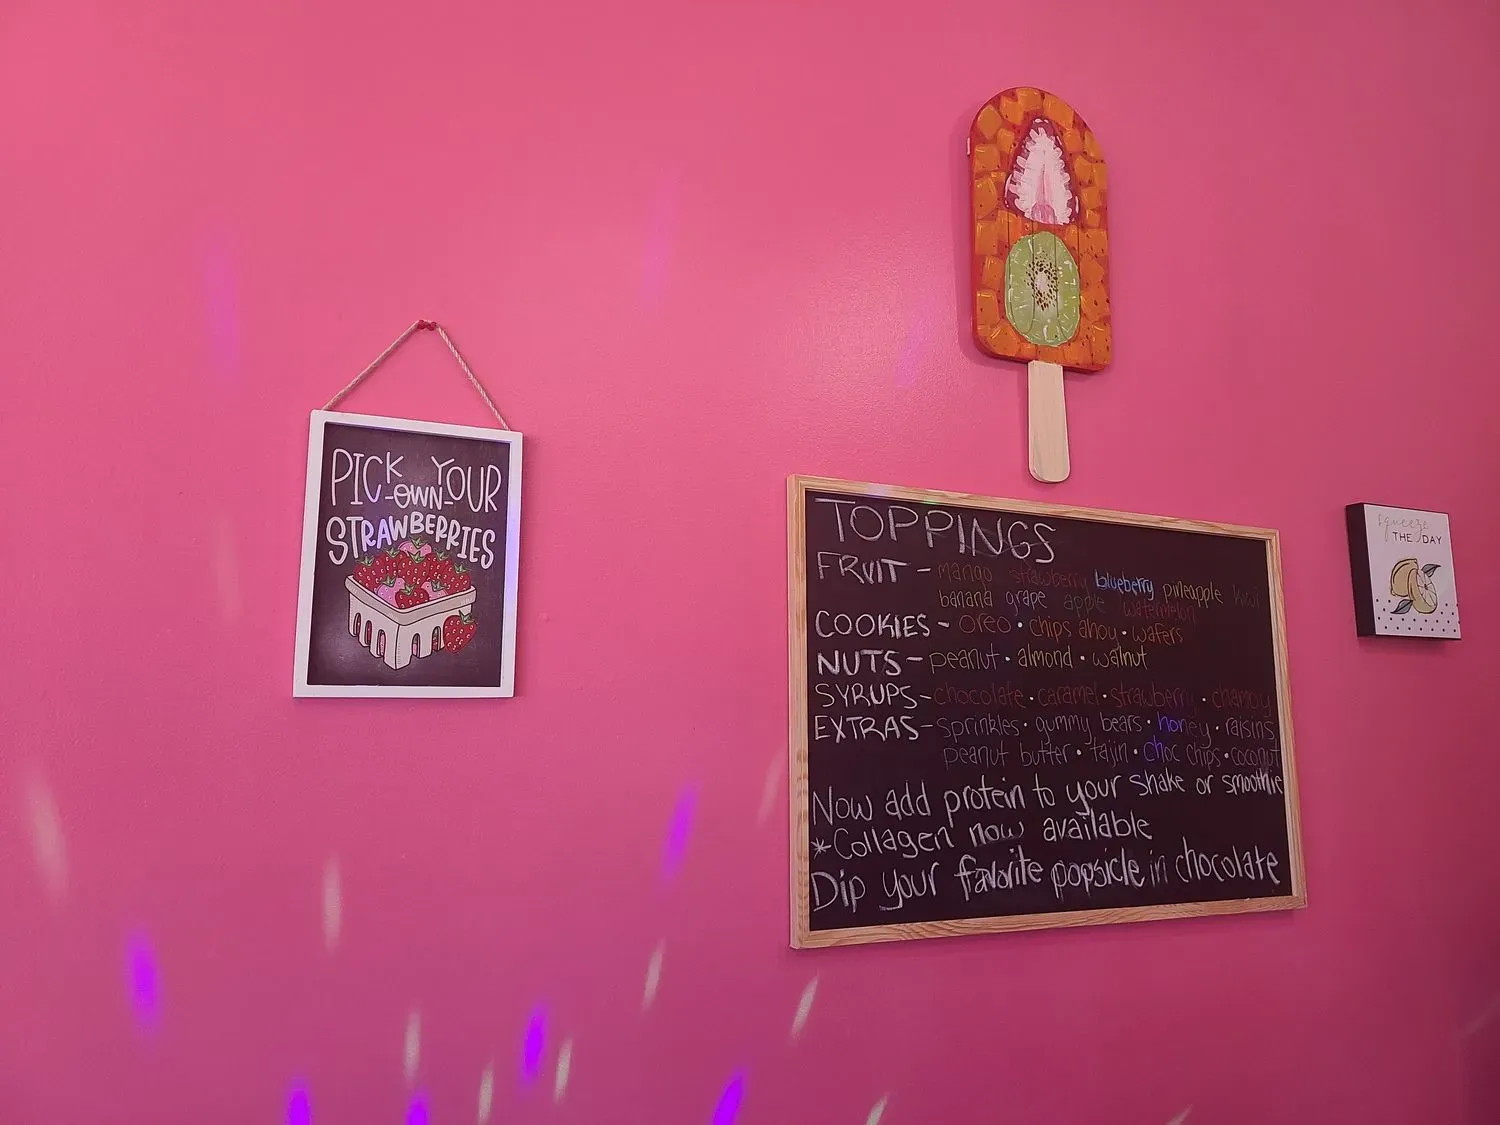 PICK YOUR
-OWN-
STRAWBERRIES
TOPPINGS
FRUIT - mango strawberry blueberry pineapple kiwi
banana grape apple watermelon
COOKIES - oreo • chips ahoy • wafers
NUTS - peanut • almond • walnut
SYRUPS - chocolate • caramel • strawberry • chamoy
EXTRAS - sprinkles • gummy bears • honey • raisins
peanut butter • tajin • choc chips • coconut
Now add protein to your shake or smoothie
*Collagen now available
Dip your favorite popsicle in chocolate
squeeze
THE DAY